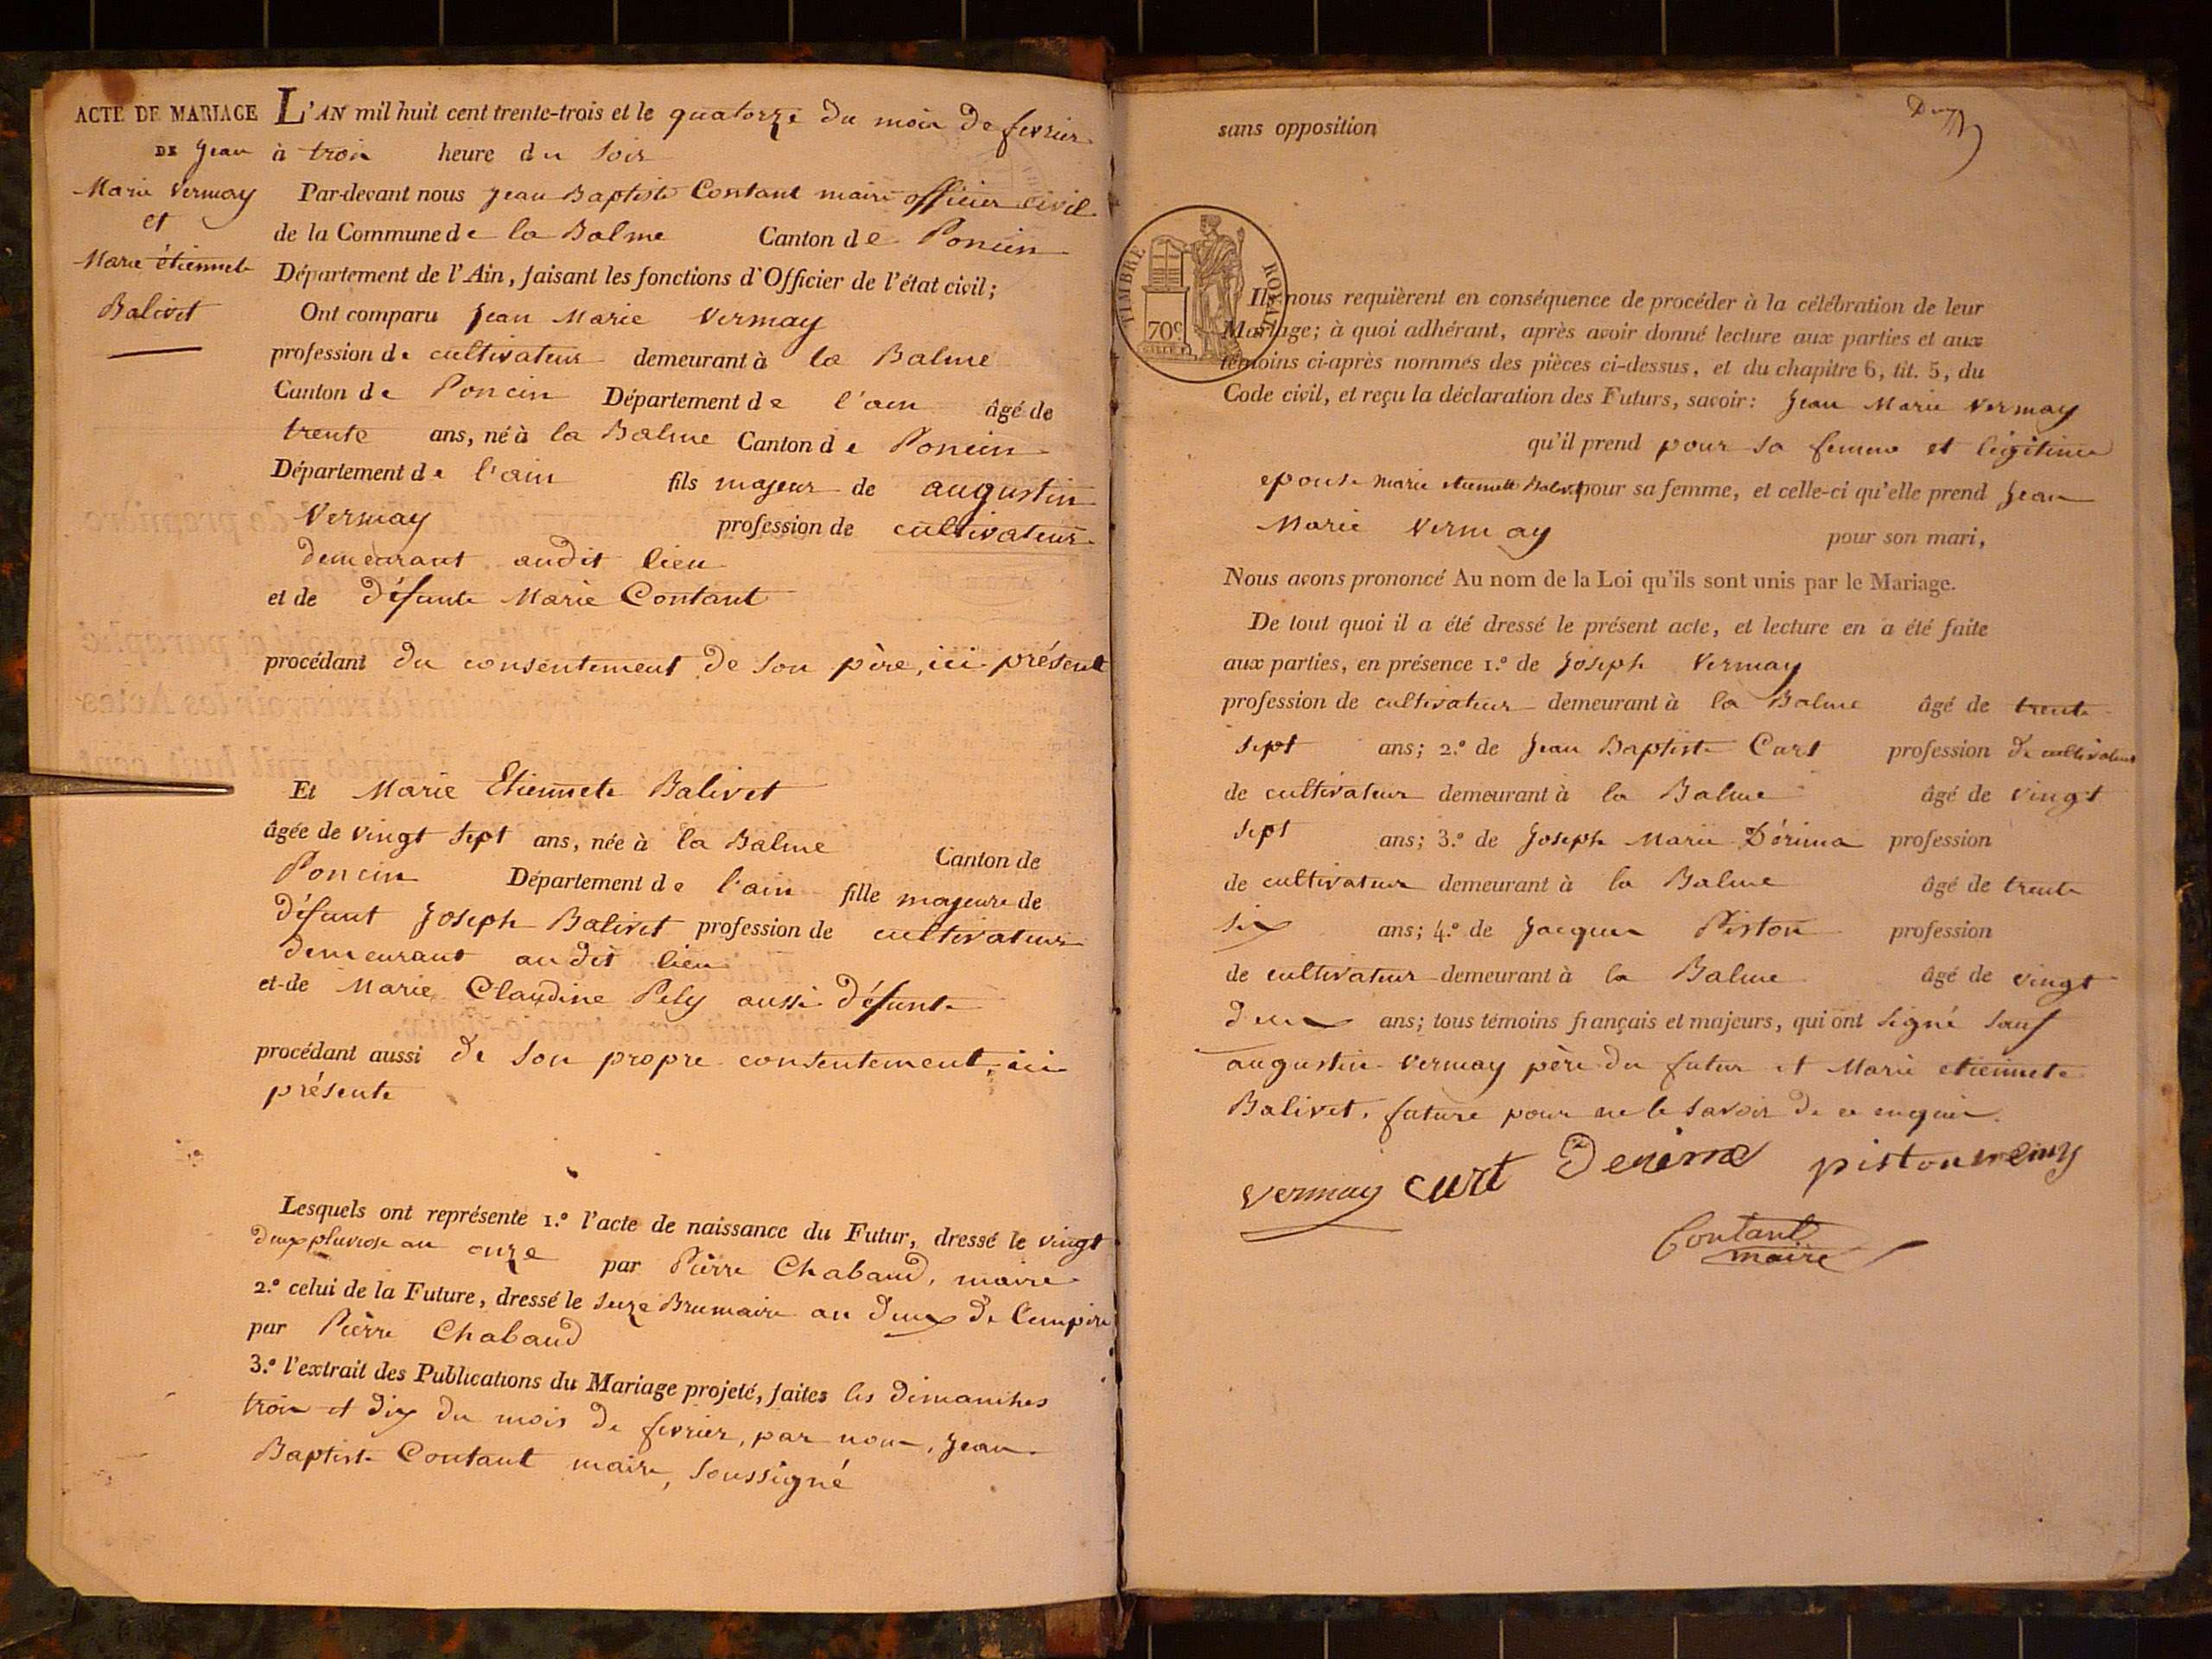 ACTE DE MARIAGE
DE Jean
Marie Vermay
et
Marie étiennete
Balivet
L'AN mil huit cent trente-trois et le quatorze du mois de fevrier
à trois heure du soir
Par-devant nous Jean Baptiste Contant maire officier civil
de la Commune de la Balme Canton de Poncin
Département de l'Ain, faisant les fonctions d'Officier de l'état civil;
Ont comparu Jean Marie Vermay
profession de cultivateur demeurant à la Balme
Canton de Poncin Département de l'ain âgé de
trente ans, né à la Balme Canton de Poncin
Département de l'ain fils majeur de augustin
Vermay profession de cultivateur
demeurant audit lieu
et de défunte Marie Contant
procédant du consentement de son père, ici présent
Et Marie Etiennete Balivet
âgée de vingt sept ans, née à la Balme Canton de
Poncin Département de l'ain fille majeure de
défunt Joseph Balivet profession de cultivateur
demeurant audit lieu
et de Marie Claudine Pely aussi défunte
procédant aussi de son propre consentement, ici
présente
Lesquels ont représenté 1.º l'acte de naissance du Futur, dressé le vingt
deux pluviose an onze par Pierre Chabaud, maire
2.º celui de la Future, dressé le seize Brumaire an deux de l'empire
par Pierre Chabaud
3.º l'extrait des Publications du Mariage projeté, faites les dimanches
trois et dix du mois de fevrier, par nous, Jean
Baptiste Contant maire, soussigné
sans opposition
TIMBRE ROYAL
70c
Ils nous requièrent en conséquence de procéder à la célébration de leur
Mariage; à quoi adhérant, après avoir donné lecture aux parties et aux
témoins ci-après nommés des pièces ci-dessus, et du chapitre 6, tit. 5, du
Code civil, et reçu la déclaration des Futurs, savoir: Jean Marie Vermay
qu'il prend pour sa femme et légitime
epouse marie etiennett Balivet pour sa femme, et celle-ci qu'elle prend Jean
Marie Vermay pour son mari,
Nous avons prononcé Au nom de la Loi qu'ils sont unis par le Mariage.
De tout quoi il a été dressé le présent acte, et lecture en a été faite
aux parties, en présence 1.º de Joseph Vermay
profession de cultivateur demeurant à la Balme âgé de trente
sept ans; 2.º de Jean Baptiste Curt profession de cultivateur
de cultivateur demeurant à la Balme âgé de vingt
sept ans; 3.º de Joseph Marie Dérima profession
de cultivateur demeurant à la Balme âgé de trente
six ans; 4.º de Jacques Piston profession
de cultivateur demeurant à la Balme âgé de vingt
deux ans; tous témoins français et majeurs, qui ont signé sauf
augustin Vermay père du futur et Marie etiennete
Balivet, future pour ne le savoir de ce enquis.
vermay curt Derima piston vermay
Contant
maire